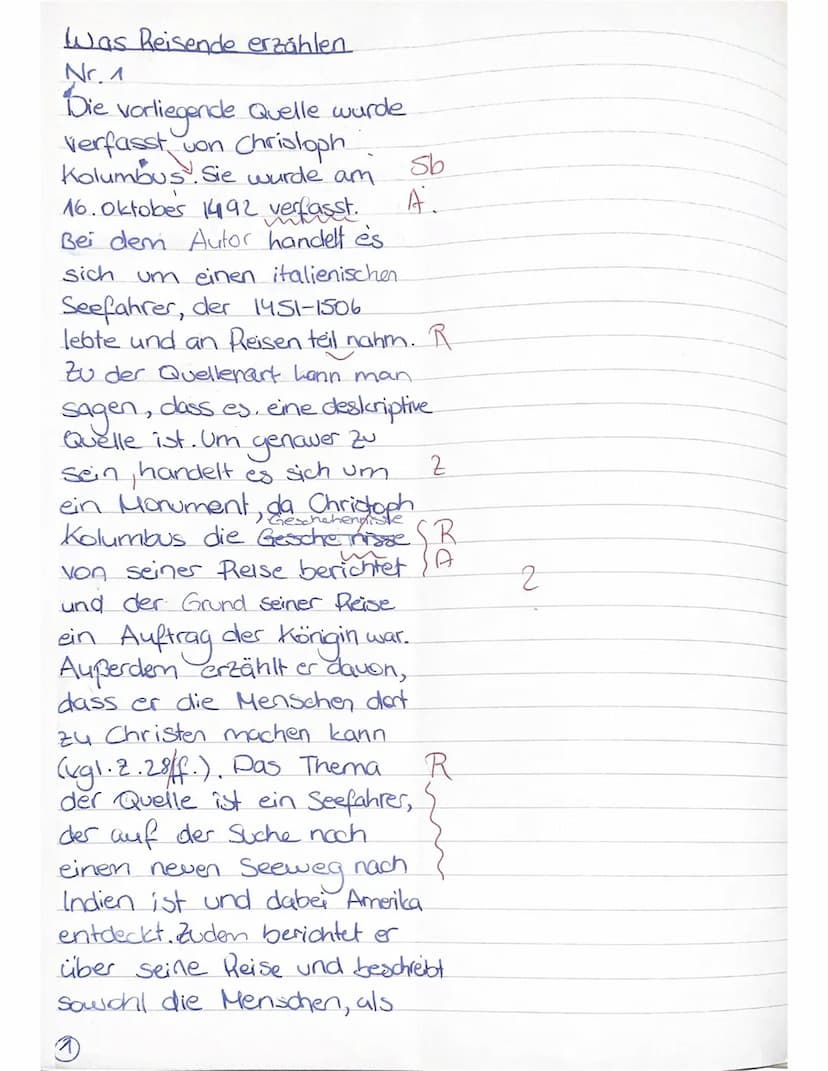 Was Reisende erzählen
Nr. 1
Die vorliegende Quelle wurde
verfasst von Christoph
Kolumbus. Sie wurde am Sb
16. Oktober 1492 verfasst. A.
Bei dem Autor handelt es
sich um einen italienischen
Seefahrer, der 1451-1506
lebte und an Reisen teil nahm. R
Zu der Quellenart kann man
sagen, dass es eine deskriptive
Quelle ist. Um genauer zu
sein, handelt es sich um Z
ein Monument, da Christoph
Geschehenisse
Kolumbus die Geschenisse R
von seiner Reise berichtet A
und der Grund seiner Reise ?
ein Auftrag der Königin war.
Außerdem erzählt er davon,
dass er die Menschen dort
zu Christen machen kann
(vgl. Z. 28/ff.). Das Thema R
der Quelle ist ein Seefahrer,
der auf der Suche nach
einem neuen Seeweg nach
Indien ist und dabei Amerika
entdeckt. Zudem berichtet er
über seine Reise und beschreibt
sowohl die Menschen, als
1